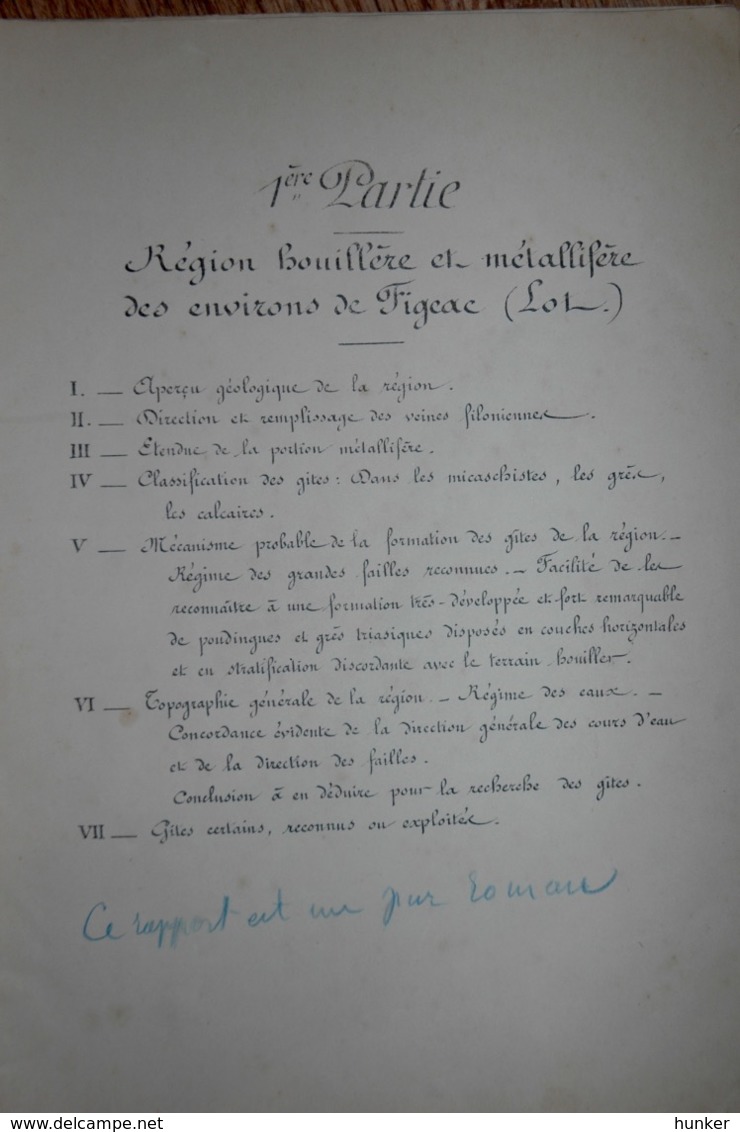 1ère Partie
Région houillère et métallifère
des environs de Figeac (Lot.)
I. — Aperçu géologique de la région.
II. — Direction et remplissage des veines filoniennes.
III — Etendue de la portion métallifère.
IV — Classification des gîtes : Dans les micaschistes, les grès,
les calcaires.
V — Mécanisme probable de la formation des gîtes de la région. —
Régime des grandes failles reconnues. — Facilité de les
reconnaître à une formation très-développée et fort remarquable
de poudingues et grès triasiques disposés en couches horizontales
et en stratification discordante avec le terrain houiller.
VI — Topographie générale de la région. — Régime des eaux. —
Concordance évidente de la direction générale des cours d'eau
et de la direction des failles.
Conclusion à en déduire pour la recherche des gîtes.
VII — Gîtes certains, reconnus ou exploités.
Ce rapport est un pur roman
www.delcampe.net
hunker